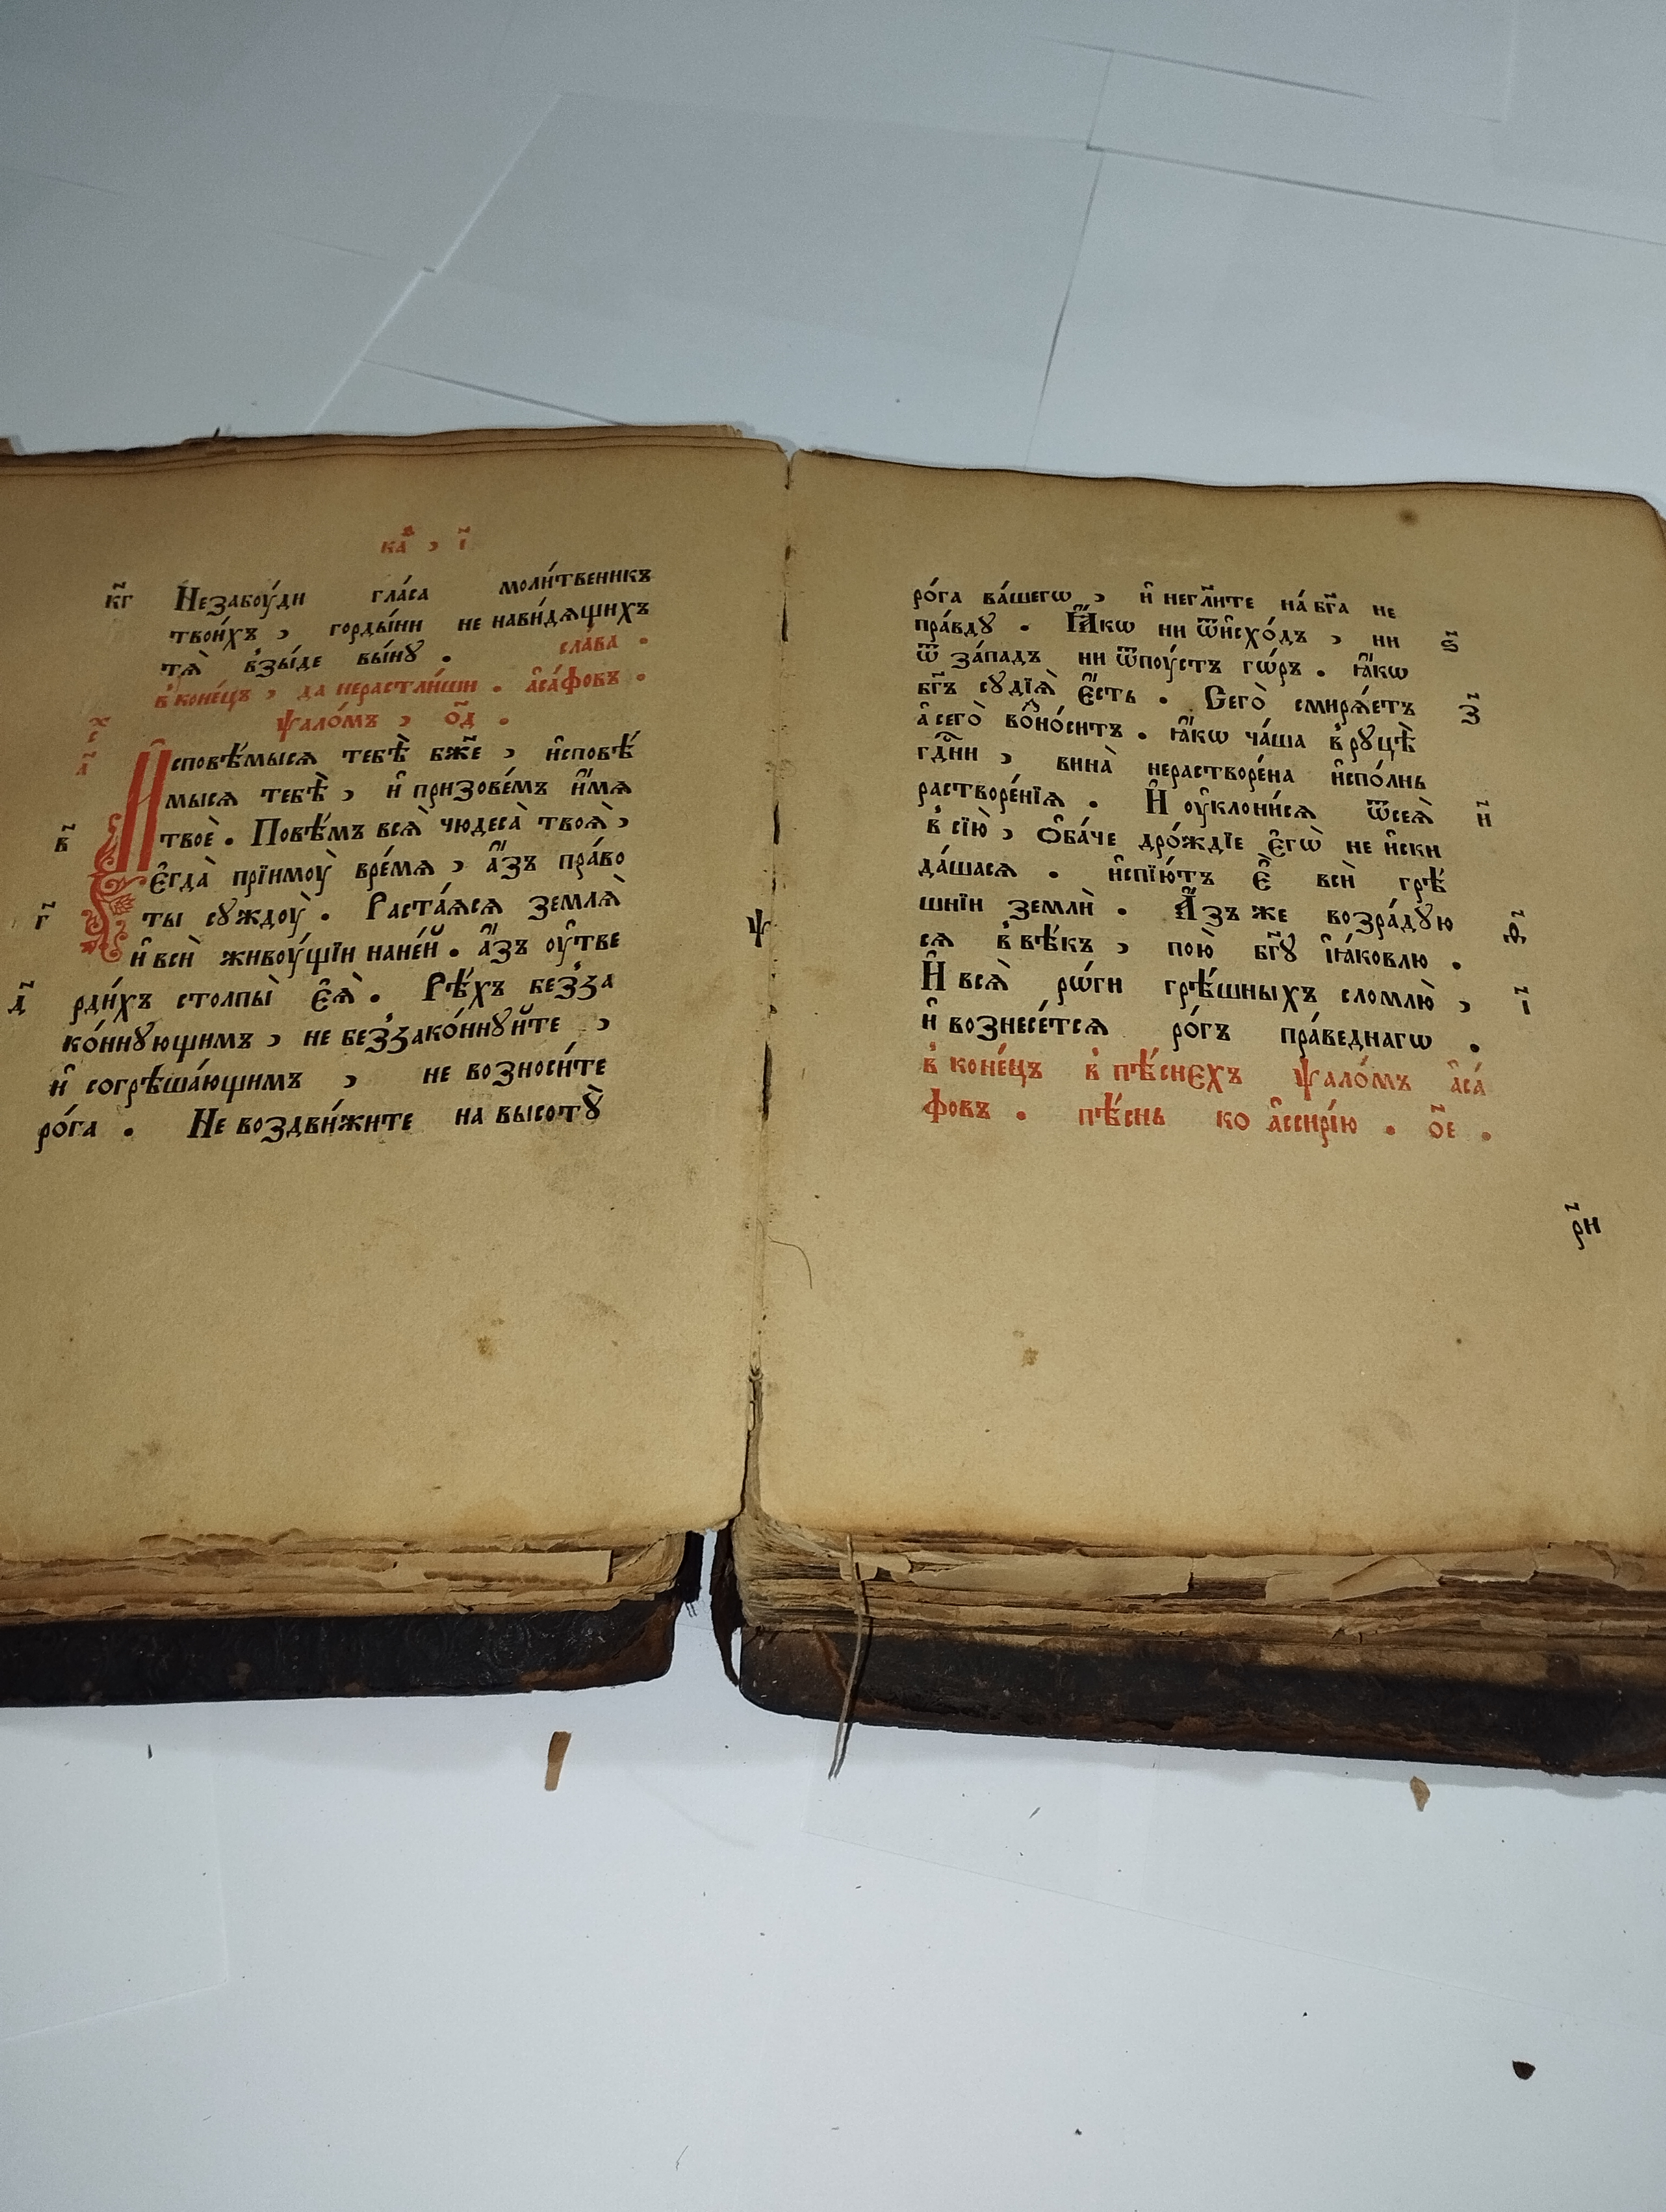 каѳ , і҃
к҃г Незабоу́ди гла́са моли́твеникъ
твои́хъ , горды́ни не нави́дѧщихъ
тѧ̀ в̾зы́де вы́нꙋ . сла́ва .
в̾ коне́цъ , да нерастли́ши . а҆са́фовъ .
ѱало́мъ , о҃д .
Исповѣ́мысѧ тебѣ̀ бж҃е , и҆сповѣ́
мысѧ тебѣ̀ , и҆ призове́мъ и҆́мѧ
в҃ твоѐ . Повѣ́мъ всѧ̀ чюдеса̀ твоѧ̀ ,
є҆гда̀ прїимоу̀ вре́мѧ , а҆́зъ пра́во
г҃ ты сꙋждоу̀ . Раста́ѧсѧ землѧ̀
и҆ всѝ живоу́щїи нане́й . а҆́зъ оу҆тве
д҃ рди́хъ столпы̀ є҆ѧ̀ . Рѣ́хъ без̾за
ко́ннꙋющимъ , не без̾зако́ннꙋйте ,
и҆ согрѣша́ющимъ , не возноси́те
ро́га . Не воздви́жите на высотꙋ̀
ѱ
ро́га ва́шегѡ , и҆ негл҃ите на́ бг҃а не
пра́вдꙋ . Ꙗ҆́кѡ ни ѿи҆схо́дъ , ни ѕ҃
ѿ за́падъ ни ѿпоу́стъ гѡ́ръ . ꙗ҆́кѡ
бг҃ъ сꙋдїѧ̀ є҆́сть . Сего̀ смирѧ́етъ з҃
а҆ сего̀ во҆но́ситъ . ꙗ҆́кѡ ча́ша в̾ рꙋцѣ̀
гд҇ни , вина̀ нерастворе́на и҆спо́лнь
растворе́нїѧ . И҆ оу҆клони́сѧ ѿсеѧ̀ и҃
в̾ сїю̀ , ѻ҆ба́че дро́ждїе є҆гѡ̀ не и҆ски
да́шасѧ . и҆спїю́тъ є҆̀ всѝ грѣ́
шнїи землѝ . А҆́зъ же возра́дꙋю ѳ҃
сѧ в̾ вѣ́къ , пою̀ бг҃ꙋ і҆ꙗ́ковлю .
И҆ всѧ̀ рѡ́ги грѣ́шныхъ сломлю̀ , і҃
и҆ вознесе́тсѧ ро́гъ пра́веднагѡ .
в̾ коне́цъ в̾ пѣ́снехъ ѱало́мъ а҆са́
фовъ . пѣ́снь ко а҆ссирі́ю . о҃е .
р҃и